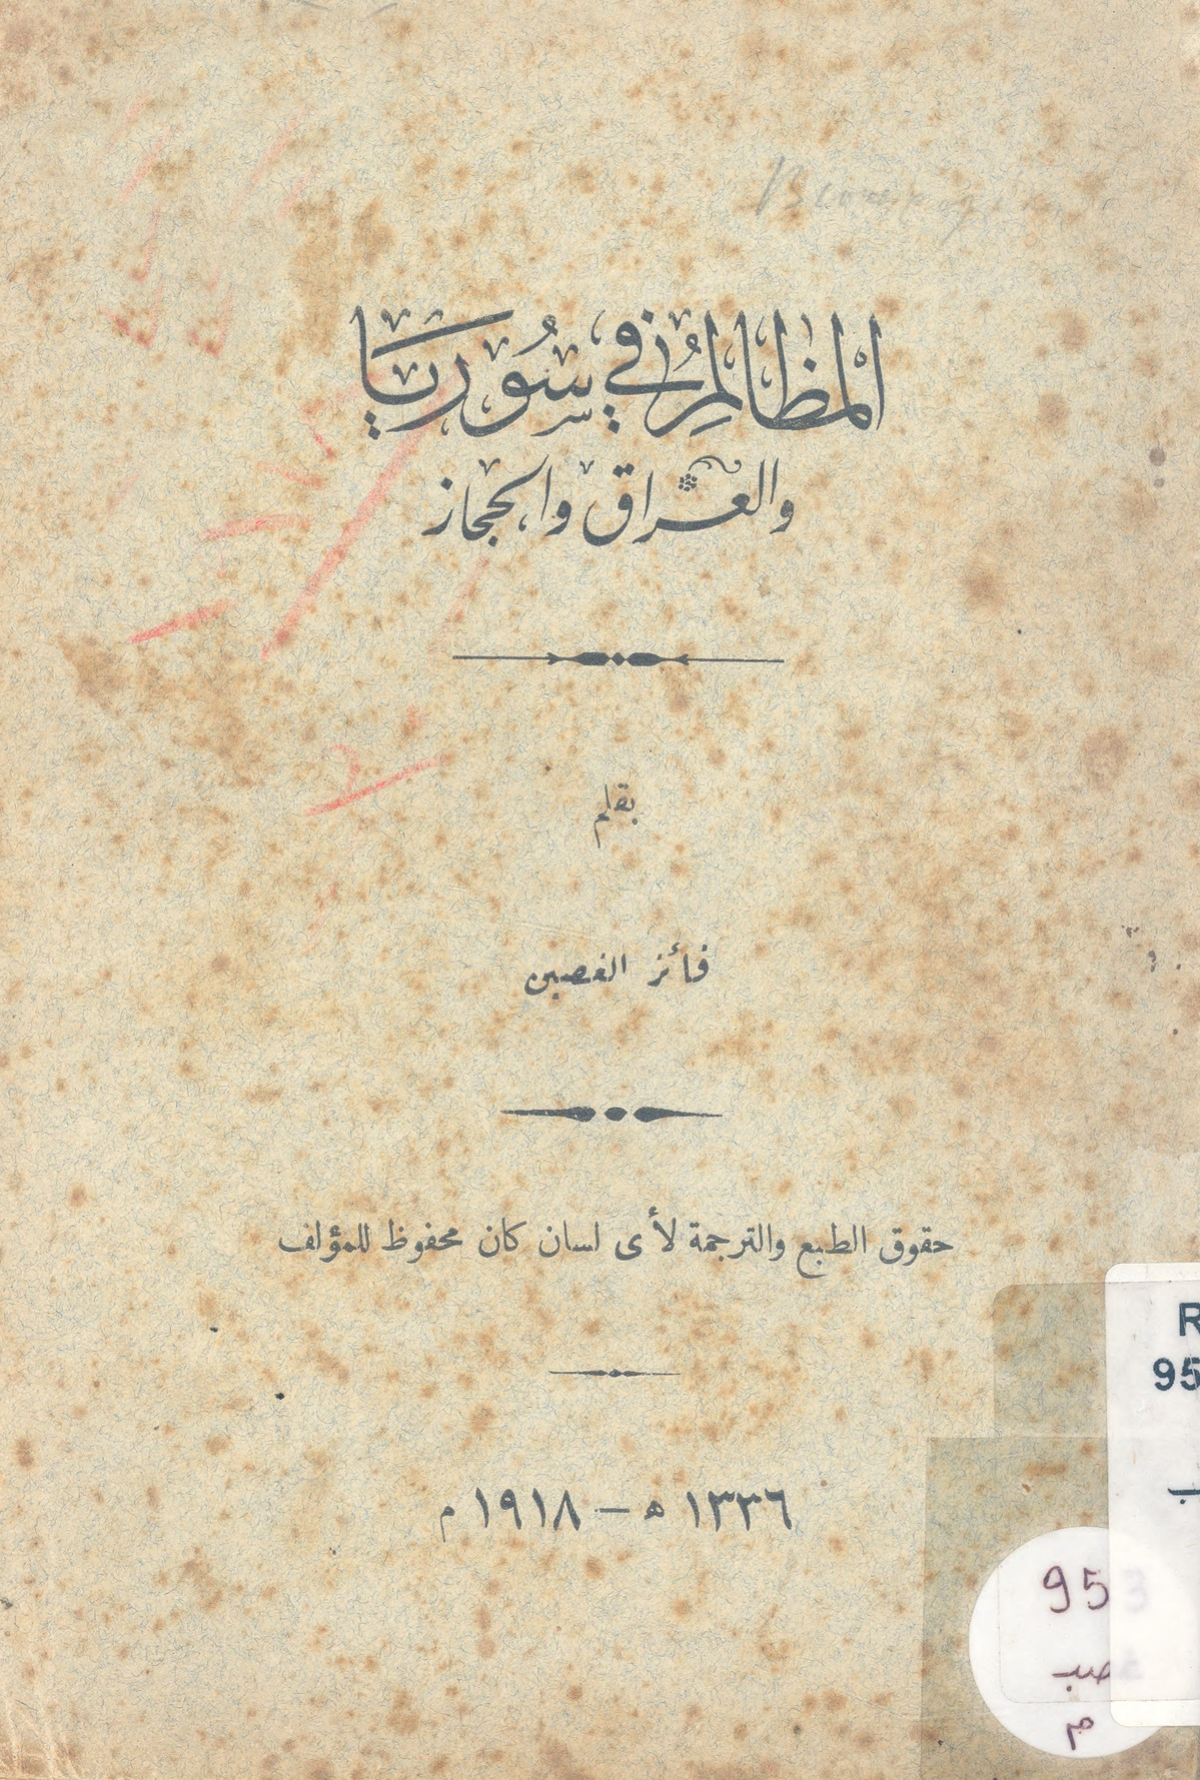 المظالم في سوريا
والعراق والحجاز
بقلم
فائز الغصين
حقوق الطبع والترجمة لأى لسان كان محفوظ للمؤلف
١٣٣٦ ه – ١٩١٨ م
R
95
ب
953
غصب
م